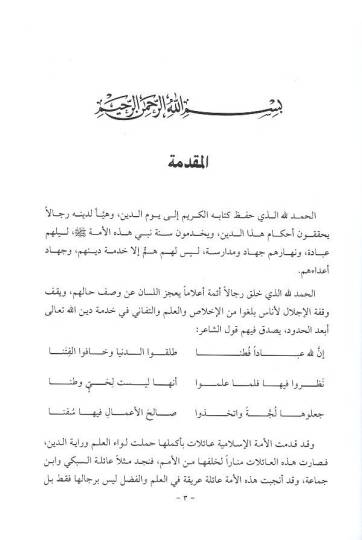 بسم الله الرحمن الرحيم
المقدمة
الحمد لله الذي حفظ كتابه الكريم إلى يوم الدين، وهيَّأ لدينه رجالاً
يحققون أحكام هذا الدين، ويخدمون سنة نبي هذه الأمة ﷺ، ليلهم
عبادة، ونهارهم جهاد ومدارسة، ليس لهم همٌّ إلا خدمة دينهم، وجهاد
أعداءهم.
الحمد لله الذي خلق رجالاً أئمة أعلاماً يعجز اللسان عن وصف حالهم، ويقف
وقفة الإجلال لأناس بلغوا من الإخلاص والعلم والتفاني في خدمة دين الله تعالى
أبعد الحدود، يصدق فيهم قول الشاعر:
إنَّ لله عبـاداً فُطنـا طلقـوا الدنيـا وخـافوا الفِتنا
نَظـروا فيهـا فلمـا علمـوا أنهـا ليسـت لِحَيٍّ وطنـا
جعلوهـا لُجَّـةً واتخـذوا صالحَ الأعمـالِ فيهـا سُفنا
وقد قدمت الأمة الإسلامية عائلات بأكملها حملت لواء العلم وراية الدين،
فصارت هذه العائلات مناراً لخلفها من الأمم، فنجد مثلاً عائلة السبكي وابن
جماعة، وقد أنجبت هذه الأمة عائلة عريقة في العلم والفضل ليس برجالها فقط بل
- ٣ -